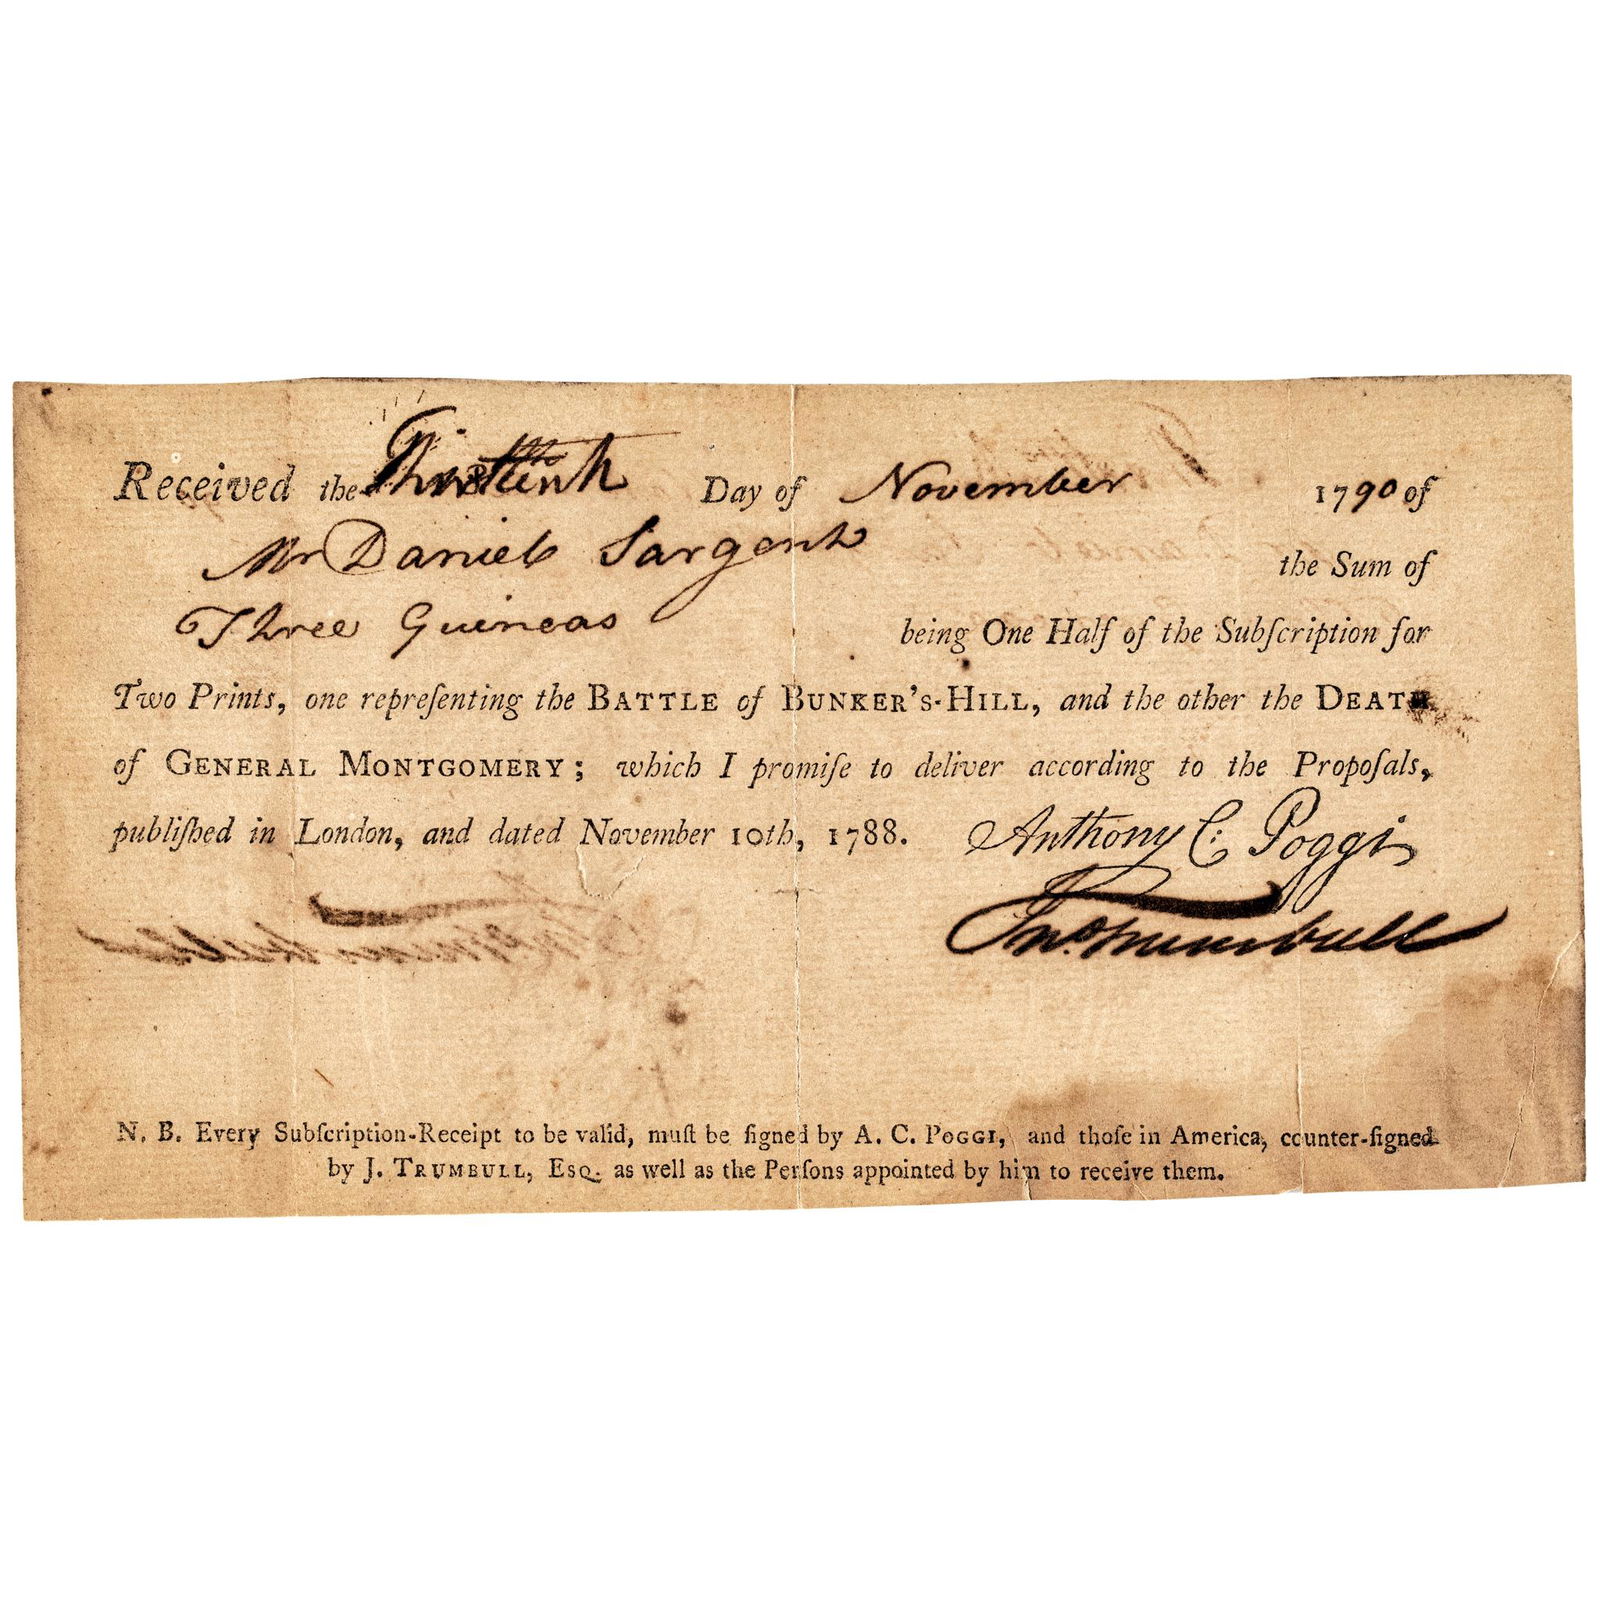 Received the Day of November 1790 of
Mr Daniel Sargent the Sum of
Three Guineas being One Half of the Subſcription for
Two Prints, one repreſenting the BATTLE of BUNKER'S-HILL, and the other the DEATH
of GENERAL MONTGOMERY; which I promiſe to deliver according to the Propoſals,
publiſhed in London, and dated November 10th, 1788. Anthony C. Poggi
Jno. Trumbull
N. B. Every Subſcription-Receipt to be valid, muſt be ſigned by A. C. POGGI, and thoſe in America, counter-ſigned
by J. TRUMBULL, ESQ. as well as the Perſons appointed by him to receive them.